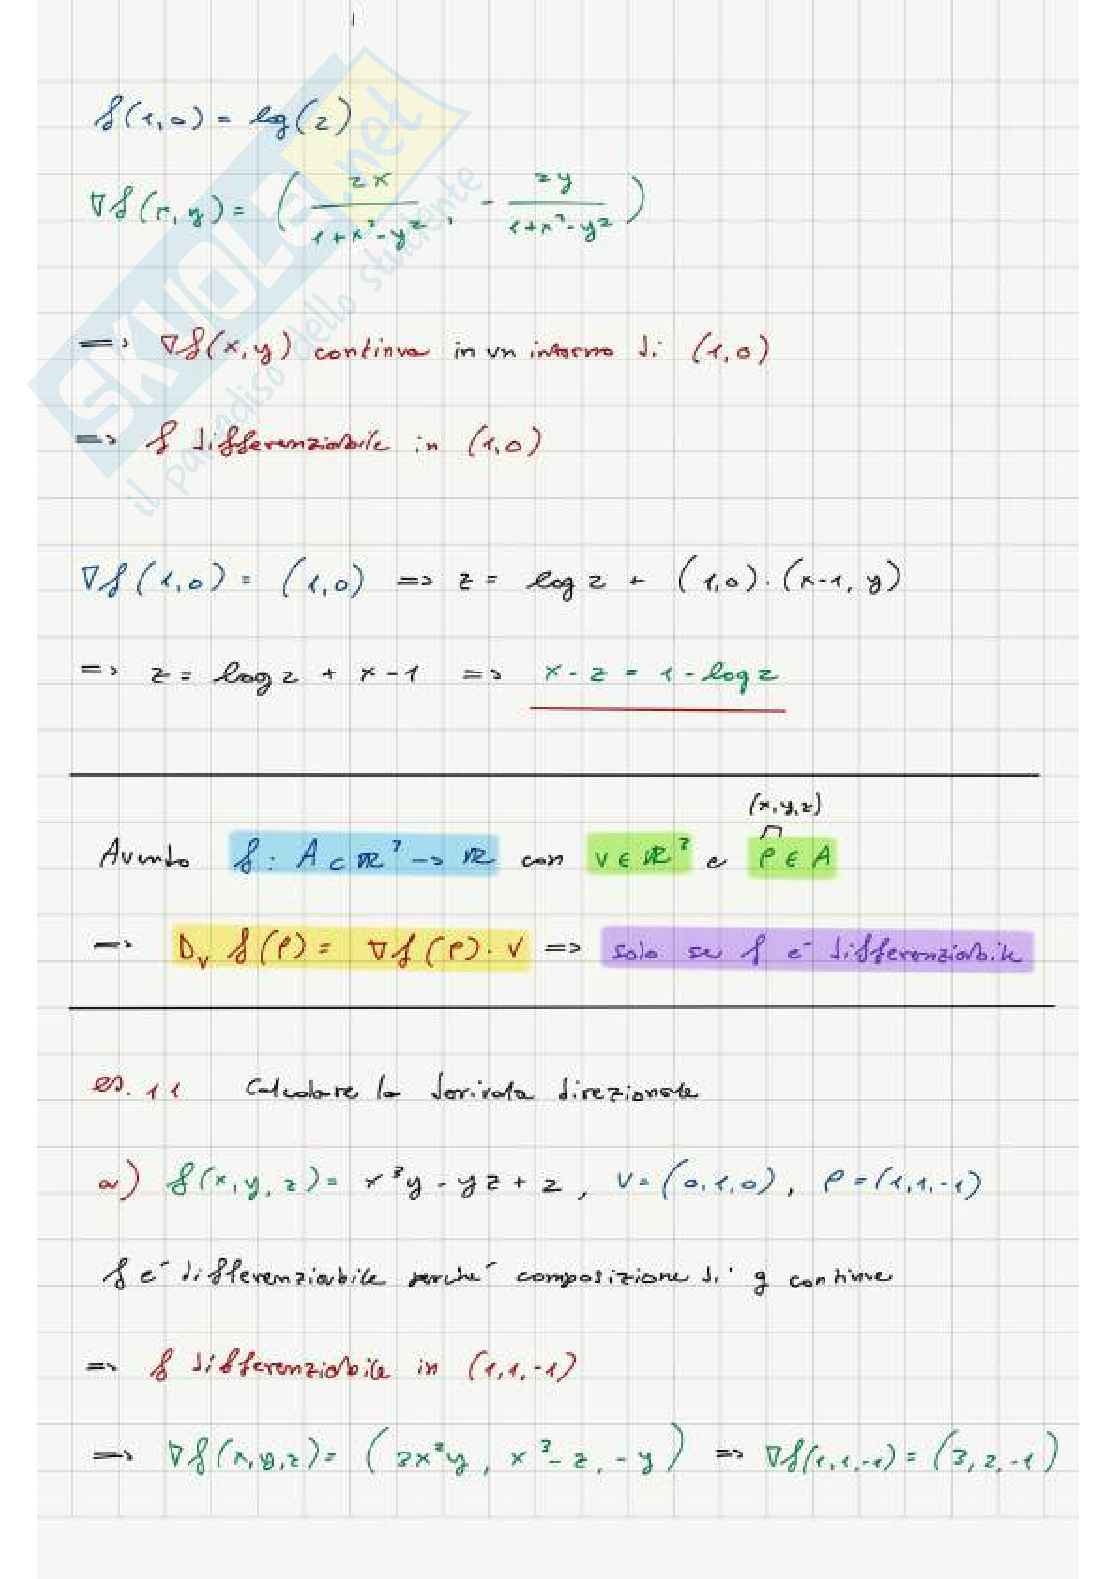 f(1,0) = log(2)
∇f(x,y) = ( 2x / 1+x²-y² , - 2y / 1+x²-y² )
=> ∇f(x,y) continua in un intorno di (1,0)
=> f differenziabile in (1,0)
∇f(1,0) = (1,0) => z = log 2 + (1,0)·(x-1, y)
=> z = log 2 + x - 1 => x - z = 1 - log 2
(x,y,z)
Avendo f: A ⊂ ℝ³ -> ℝ con v ∈ ℝ³ e P ∈ A
=> D_v f(P) = ∇f(P)·v => solo se f è differenziabile
es. 11 Calcolare la derivata direzionale
a) f(x,y,z) = x³y - yz + 2, v = (0,1,0), P = (1,1,-1)
f è differenziabile perché composizione di g continue
=> f differenziabile in (1,1,-1)
=> ∇f(x,y,z) = (3x²y, x³-z, -y) => ∇f(1,1,-1) = (3,2,-1)
SKUOLA.net
il paradiso dello studente